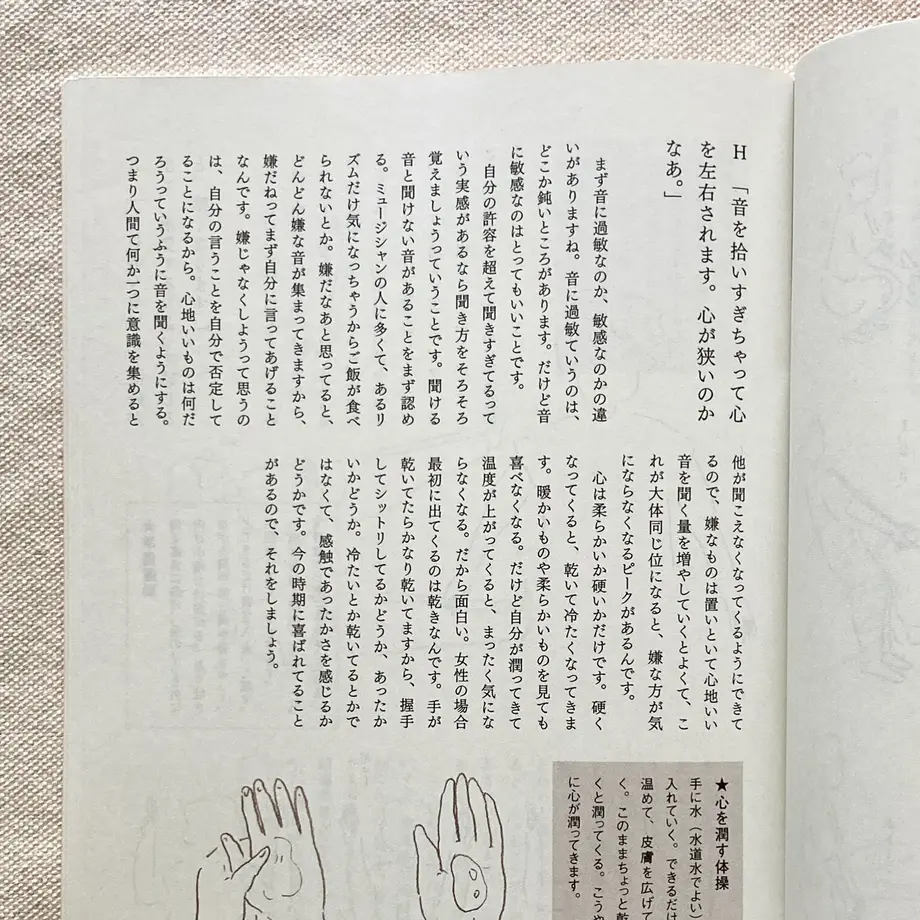 H 「音を拾いすぎちゃって心
を左右されます。心が狭いのか
なあ。」
まず音に過敏なのか、敏感なのかの違
いがありますね。音に過敏ていうのは、
どこか鈍いところがあります。だけど音
に敏感なのはとってもいいことです。
自分の許容を超えて聞きすぎてるって
いう実感があるなら聞き方をそろそろ
覚えましょうっていうことです。聞ける
音と聞けない音があることをまず認め
る。ミュージシャンの人に多くて、あるリ
ズムだけ気になっちゃうからご飯が食べ
られないとか。嫌だなあと思ってると、
どんどん嫌な音が集まってきますから、
嫌だねってまず自分に言ってあげること
なんです。嫌じゃなくしようって思うの
は、自分の言うことを自分で否定して
ることになるから。心地いいものは何だ
ろうっていうふうに音を聞くようにする。
つまり人間て何か一つに意識を集めると
他が聞こえなくなってくるようにできて
るので、嫌なものは置いといて心地いい
音を聞く量を増やしていくとよくて、こ
れが大体同じ位になると、嫌な方が気
にならなくなるピークがあるんです。
心は柔らかいか硬いかだけです。硬く
なってくると、乾いて冷たくなってきま
す。暖かいものや柔らかいものを見ても
喜べなくなる。だけど自分が潤ってきて
温度が上がってくると、まったく気にな
らなくなる。だから面白い。女性の場合
最初に出てくるのは乾きなんです。手が
乾いてたらかなり乾いてますから、握手
してシットリしてるかどうか、あったか
いかどうか。冷たいとか乾いてるとかで
はなくて、感触であったかさを感じるか
どうかです。今の時期に喜ばれてること
があるので、それをしましょう。
★心を潤す体操
手に水（水道水でよい）
入れていく。できるだけ
温めて、皮膚を広げて
く。このままちょっと乾
くと潤ってくる。こうや
に心が潤ってきます。